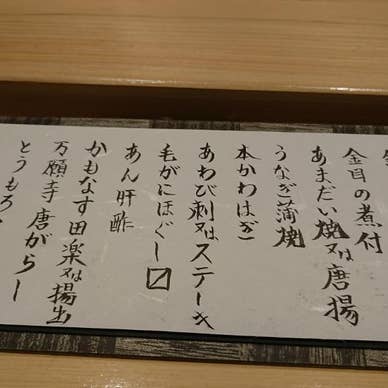 金目の煮付
あまだい焼又は唐揚
うなぎ蒲焼
本かわはぎ
あわび刺又はステーキ
毛がにほぐし〼
あん肝酢
かもなす田楽又は揚出
万願寺唐がらし
とうもろ